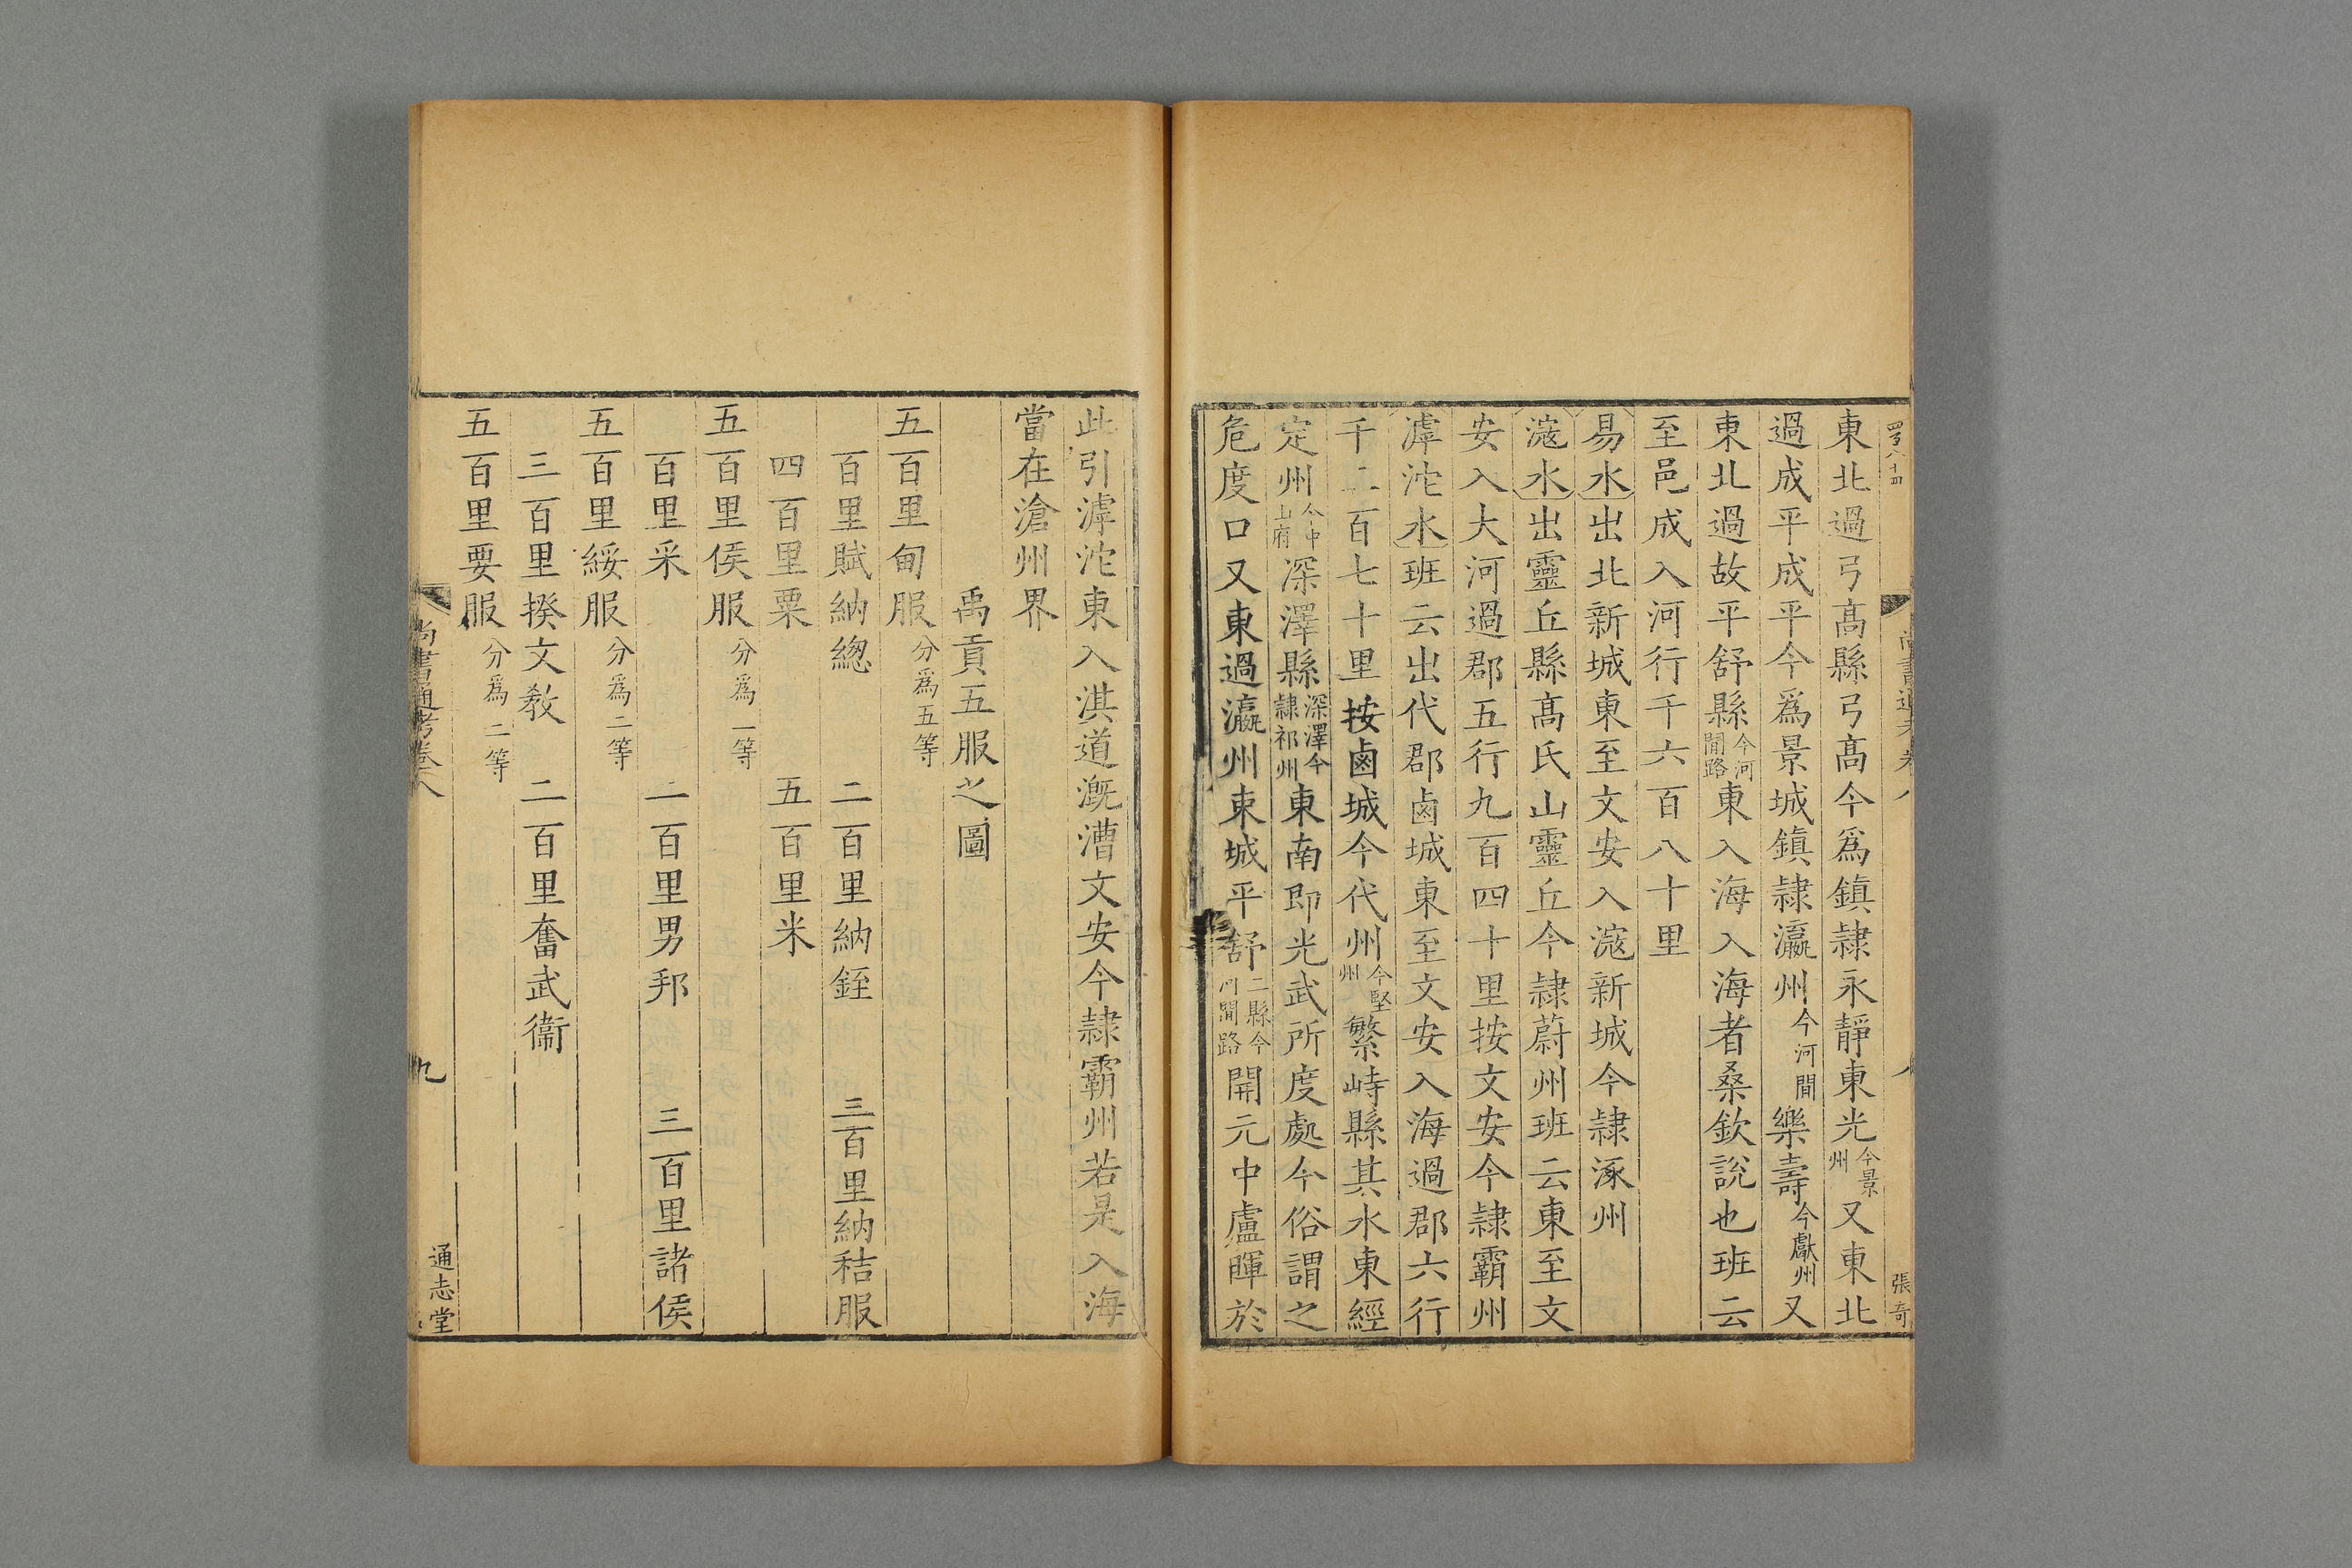 東北過弓高縣弓高今爲鎮隷永靜東光今景州又東北
過成平成平今爲景城鎮隷瀛州今河間樂壽今獻州又
東北過故平舒縣今河間路東入海入海者桑欽說也班云
至邑成入河行千六百八十里
易水出北新城東至文安入滱新城今隷涿州
滱水出靈丘縣髙氏山靈丘今隷蔚州班云東至文
安入大河過郡五行九百四十里按文安今隷霸州
滹沱水班云出代郡鹵城東至文安入海過郡六行
千二百七十里按鹵城今代州今堅州繁峙縣其水東經
定州今中山府深澤縣深澤今隷祁州東南即光武所度處今俗謂之
危度口又東過瀛州束城平舒二縣今河間路開元中盧暉於
張奇
此引滹沱東入淇道溉漕文安今隷霸州若是入海
當在滄州界
禹貢五服之圖
五百里甸服分爲五等
百里賦納緫 二百里納銍 三百里納秸服
四百里粟 五百里米
五百里侯服分爲一等
百里采 二百里男邦 三百里諸侯
五百里綏服分爲二等
三百里揆文教 二百里奮武衞
五百里要服分爲二等
尚書通考卷八
九
通志堂